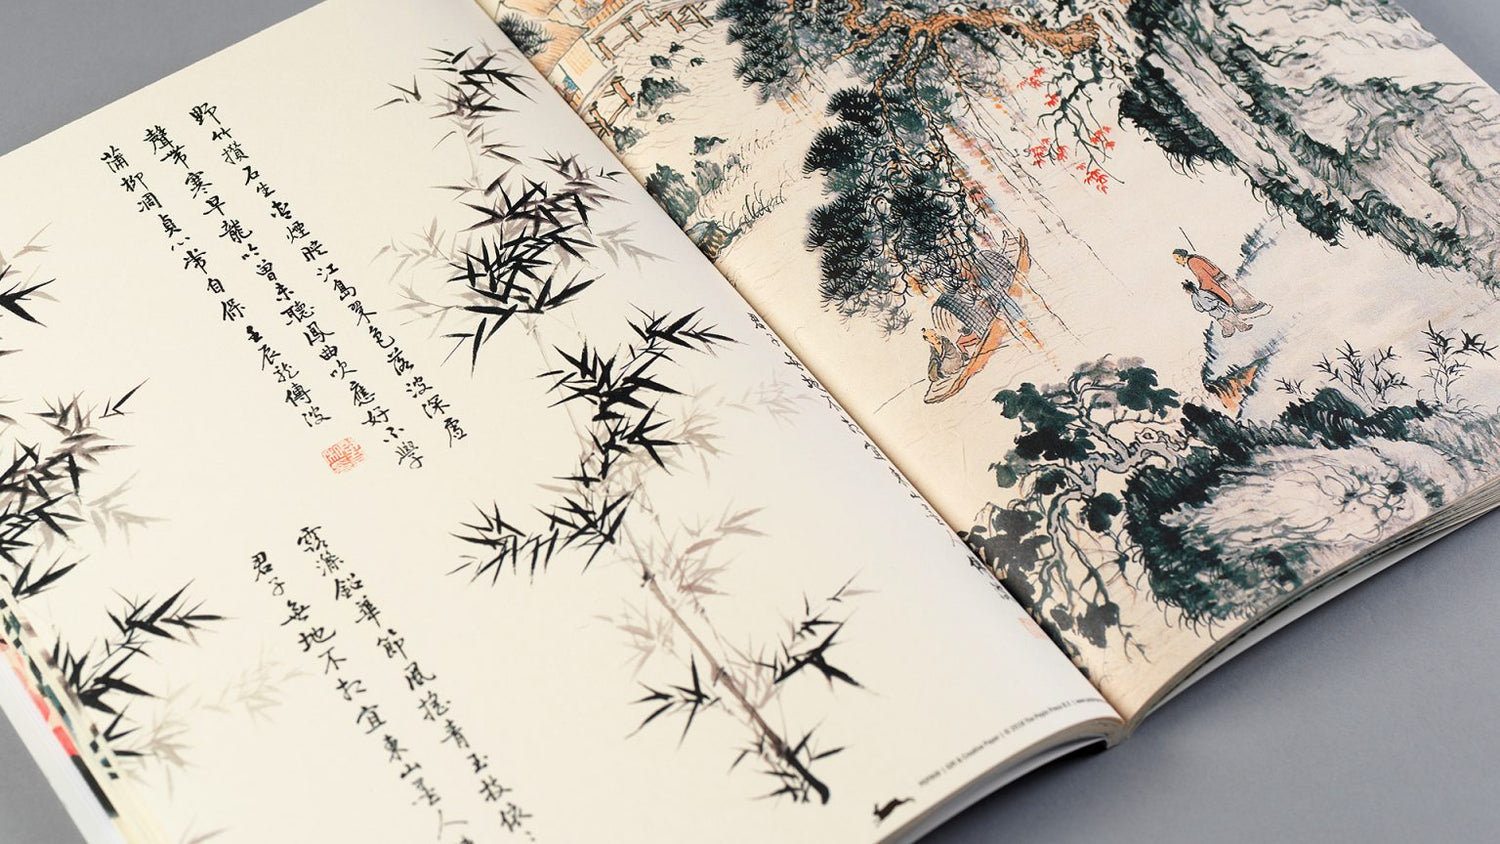 野竹攢石生含煙映江島翠色落波深虛
聲帶寒早龍吟曾未聽鳳曲吹應好不學
蒲柳凋貞心常自保 壬辰
露滌鉛華節風搖青玉枝依
君子無地不相宜東山墨人
PEPIN® | Gift & Creative Paper | © 2018 The Pepin Press B.V. |